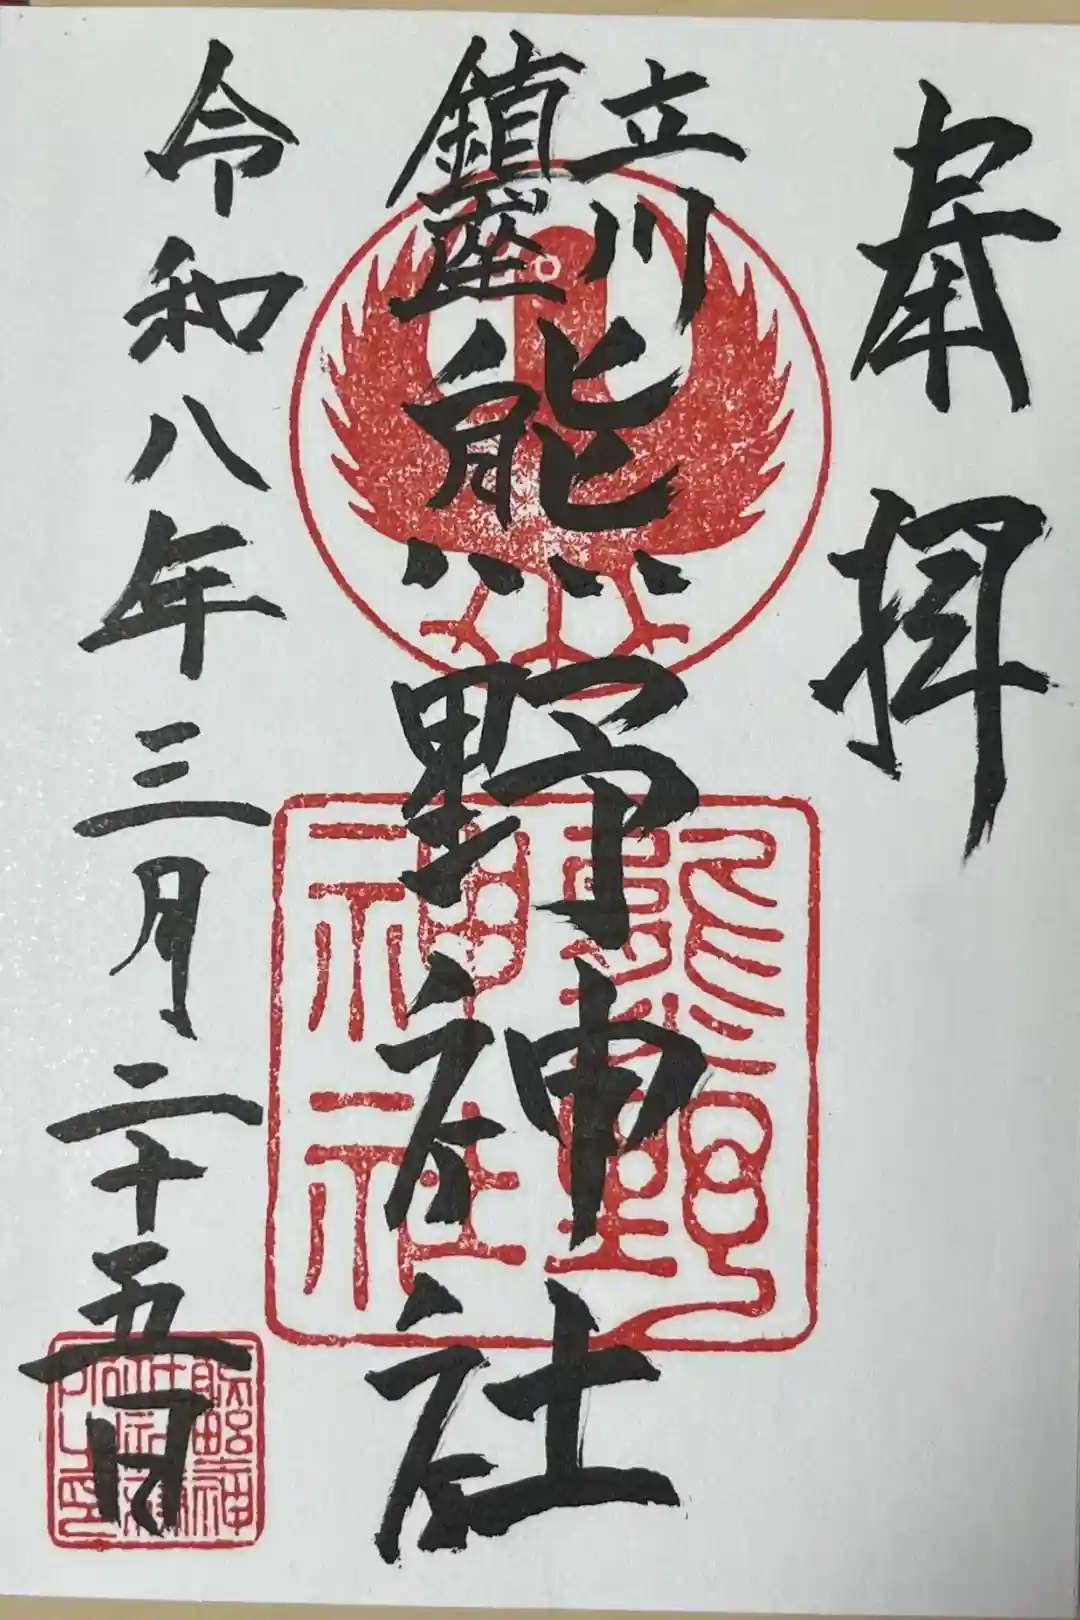 奉拝
立川
鎮座
熊野神社
令和八年三月二十五日
熊野
神社